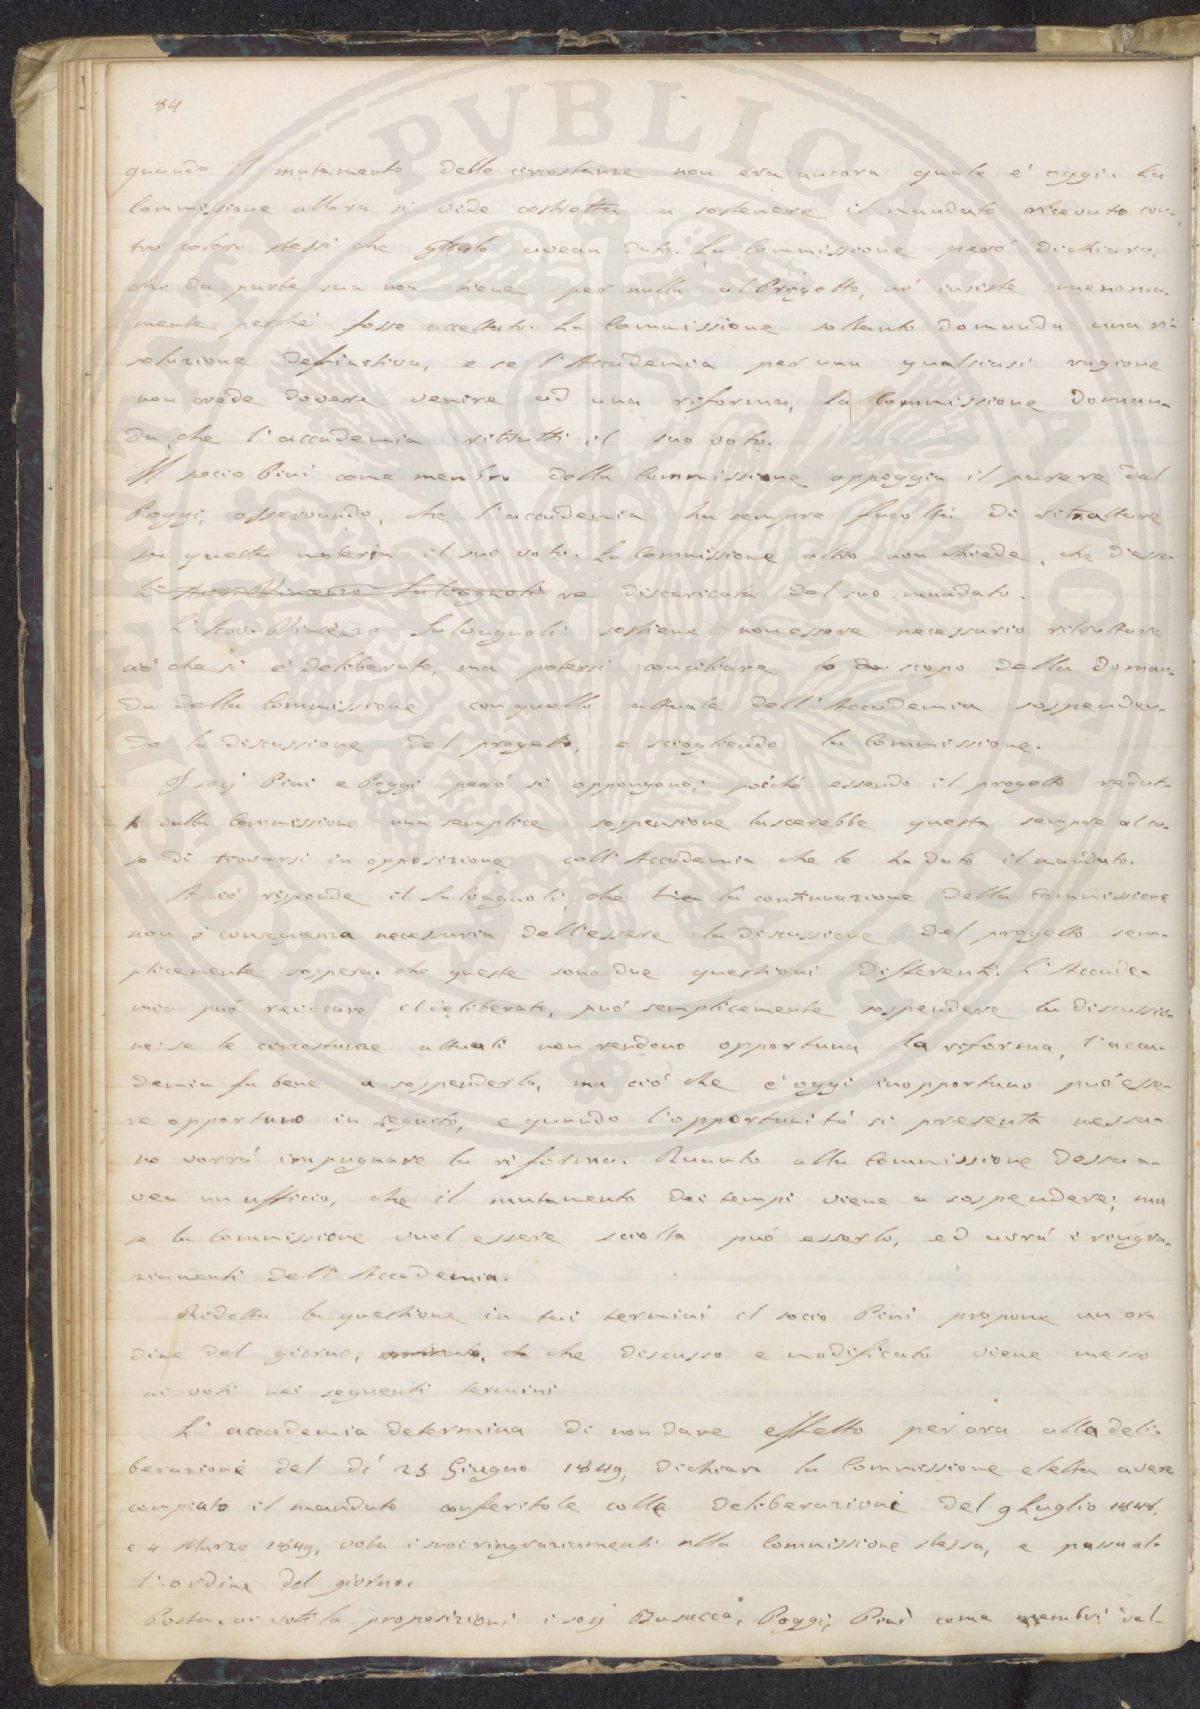 84
PVBLICI
quando il mutamento delle circostanze non era ancora quale è oggi. La
Commissione allora si vide costretta a sostenere il mandato ricevuto con-
tro coloro stessi che glielo avean dato. La Commissione però dichiara,
che da parte sua non tiene per nulla al Progetto, nè insiste menoma-
mente perchè fosse accettato. La Commissione soltanto domanda una ri-
soluzione definitiva, e se l'Accademia per una qualsiasi ragione
non crede dovere venire ad una riforma, la Commissione doman-
da che l'accademia ritratti il suo voto.
Il socio Pini come membro della Commissione appoggia il parere del
Poggi, osservando, che l'accademia ha sempre facoltà di ritrattare
su questa materia il suo voto. La Commissione altro non chiede, che d'esse-
re discaricata del suo mandato.
L'Avv. Vincenzo Salvagnoli sostiene non essere necessario ritrattare
ciò che si è deliberato, ma potersi conciliare lo scopo della doman-
da della Commissione con quello attuale dell'Accademia sospenden-
do la discussione del progetto, e sciogliendo la Commissione.
I socj Pini e Poggi però si oppongono; poichè essendo il progetto redat-
to dalla Commissione una semplice sospensione lascerebbe questa sempre al ca-
so di trovarsi in opposizione coll'Accademia che le ha dato il mandato.
A ciò risponde il Salvagnoli, che la continuazione della Commissione
non è conseguenza necessaria dell'essere la discussione del progetto sem-
plicemente sospesa: che queste sono due questioni differenti. L'Accade-
mia può revocare il deliberato, può semplicemente sospendere la discussio-
ne: se le circostanze attuali non rendono opportuna la riforma, l'acca-
demia fa bene a sospenderla, ma ciò che è oggi inopportuno può esse-
re opportuno in seguito, e quando l'opportunità si presenta nessu-
no vorrà impugnare la riforma. Quanto alla Commissione dessa a-
vea un ufficio, che il mutamento dei tempi viene a sospendere; ma
se la Commissione vuol essere sciolta può esserlo, ed avrà i ringra-
ziamenti dell'Accademia.
Ridotta la questione in tai termini il socio Pini propone un or-
dine del giorno, che discusso e modificato viene messo
ai voti nei seguenti termini
L'accademia determina di non dare effetto per ora alla deli-
berazione del dì 25 Giugno 1849, dichiara la Commissione eletta avere
compiuto il mandato conferitole colle deliberazioni del 9 Luglio 1848,
e 4 Marzo 1849, vota i suoi ringraziamenti alla Commissione stessa, e passa al-
l'ordine del giorno.
Posta ai voti la proposizioni i socj Busacca, Poggi, Pini come membri del-